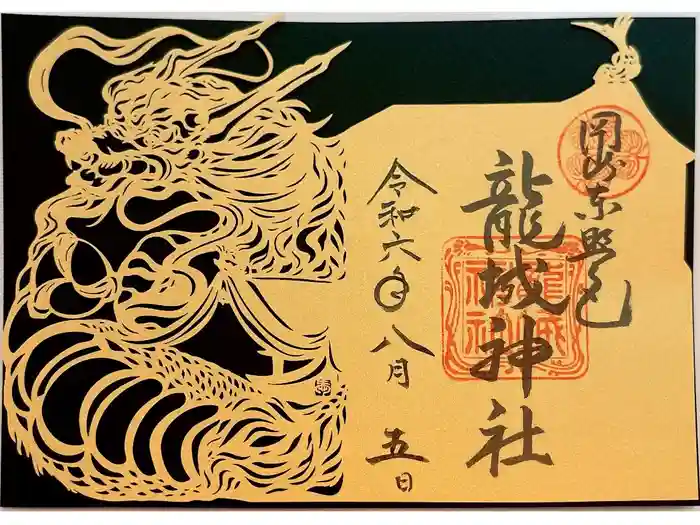 岡崎東照宮
龍城神社
令和六年八月五日